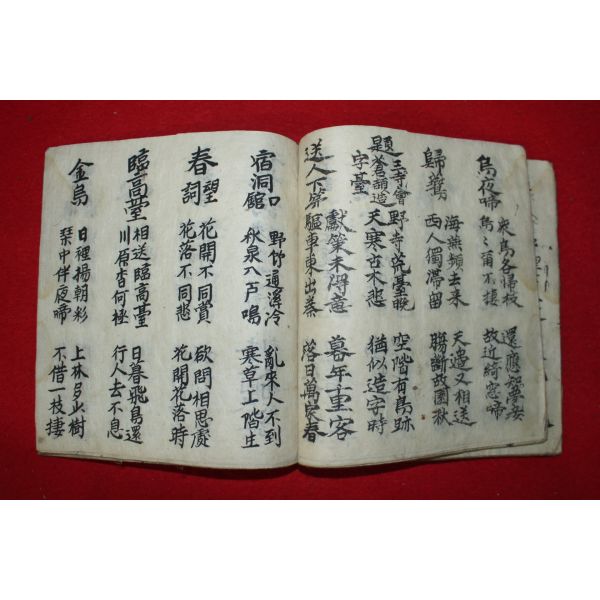 烏夜啼
衆鳥各歸枝 還應
烏々爾不棲 故近綺窓啼
歸鷰
海燕頻去來 天邊又相送
西人獨滯留 腸斷故園秋
題王寺會
蒼頡造
字臺
野寺荒臺晩 空階有鳥跡
天寒古木悲 猶似造字時
送人下第
獻策未得意 暮年重客
驅車東出秦 落日萬家春
宿洞口
館
野竹通溪冷 亂來人不到
秋泉入戶鳴 寒草上階生
春望
詞
花開不同賞 欲問相思處
花落不同悲 花開花落時
臨高臺
相送臨高臺 日暮飛鳥還
川原杳何極 行人去不息
金烏
日裡揚朝彩 上林多少樹
琴中伴夜啼 不借一枝棲